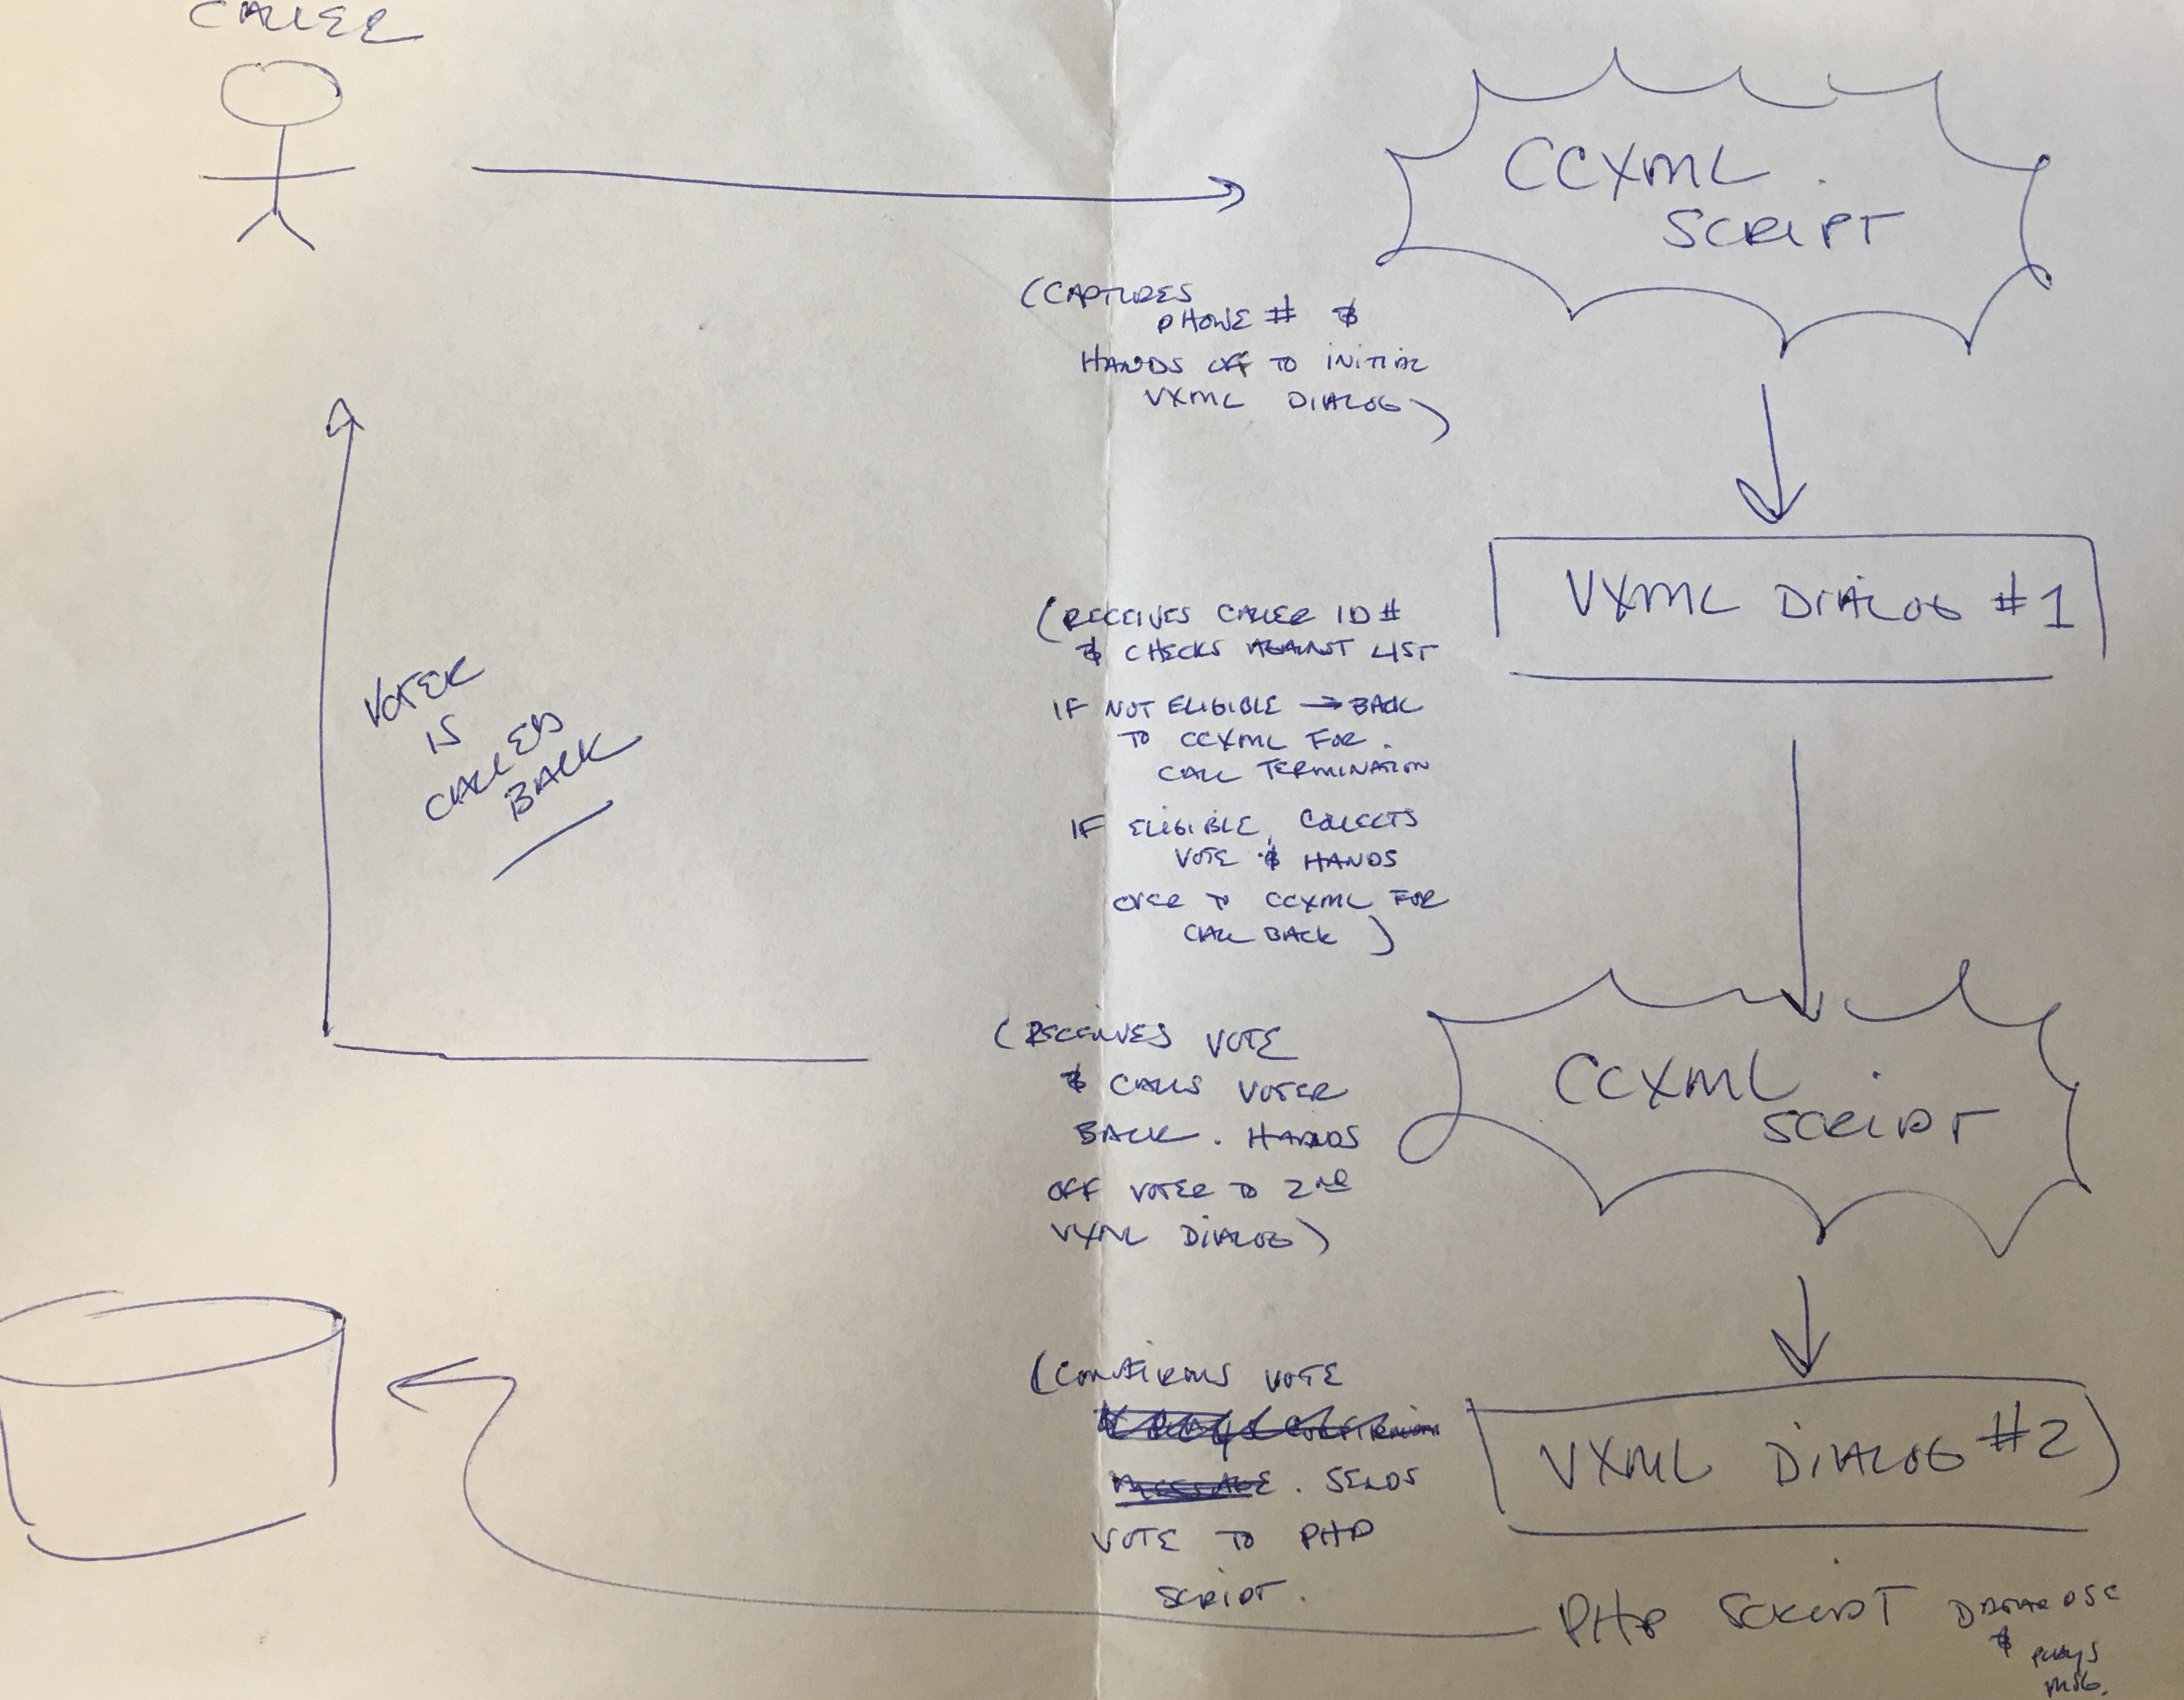 CALLER
CCXML
SCRIPT
(CAPTURES
PHONE # &
HANDS OFF TO INITIAL
VXML DIALOG)
VXML DIALOG #1
(RECEIVES CALLER ID #
& CHECKS AGAINST LIST
IF NOT ELIGIBLE → BACK
TO CCXML FOR
CALL TERMINATION
IF ELIGIBLE, COLLECTS
VOTE & HANDS
OVER TO CCXML FOR
CALL BACK)
VOTER
IS
CALLED
BACK
CCXML
SCRIPT
(RECEIVES VOTE
& CALLS VOTER
BACK. HANDS
OFF VOTER TO 2ND
VXML DIALOG)
VXML DIALOG #2
(CONFIRMS VOTE
. SENDS
VOTE TO PHP
SCRIPT.
PHP SCRIPT
& PLAYS
MSG.